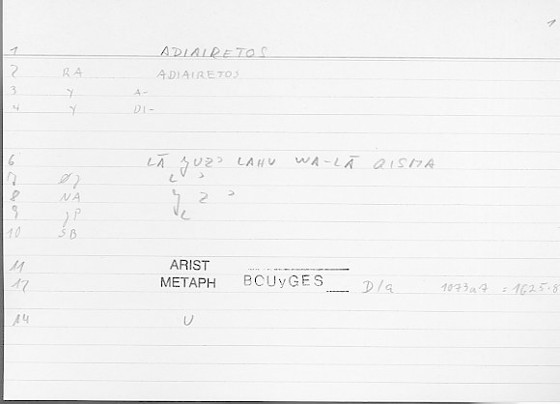 1
1 ADIAIRETOS
2 RA ADIAIRETOS
3 Y A-
4 Y DI-
6 LĀ ǦUZʾ LAHU WA-LĀ QISMA
7
8 NA
9
10 SB
11 ARIST
12 METAPH BCUyGES D/a 1073a7 = 1625.8
14 U